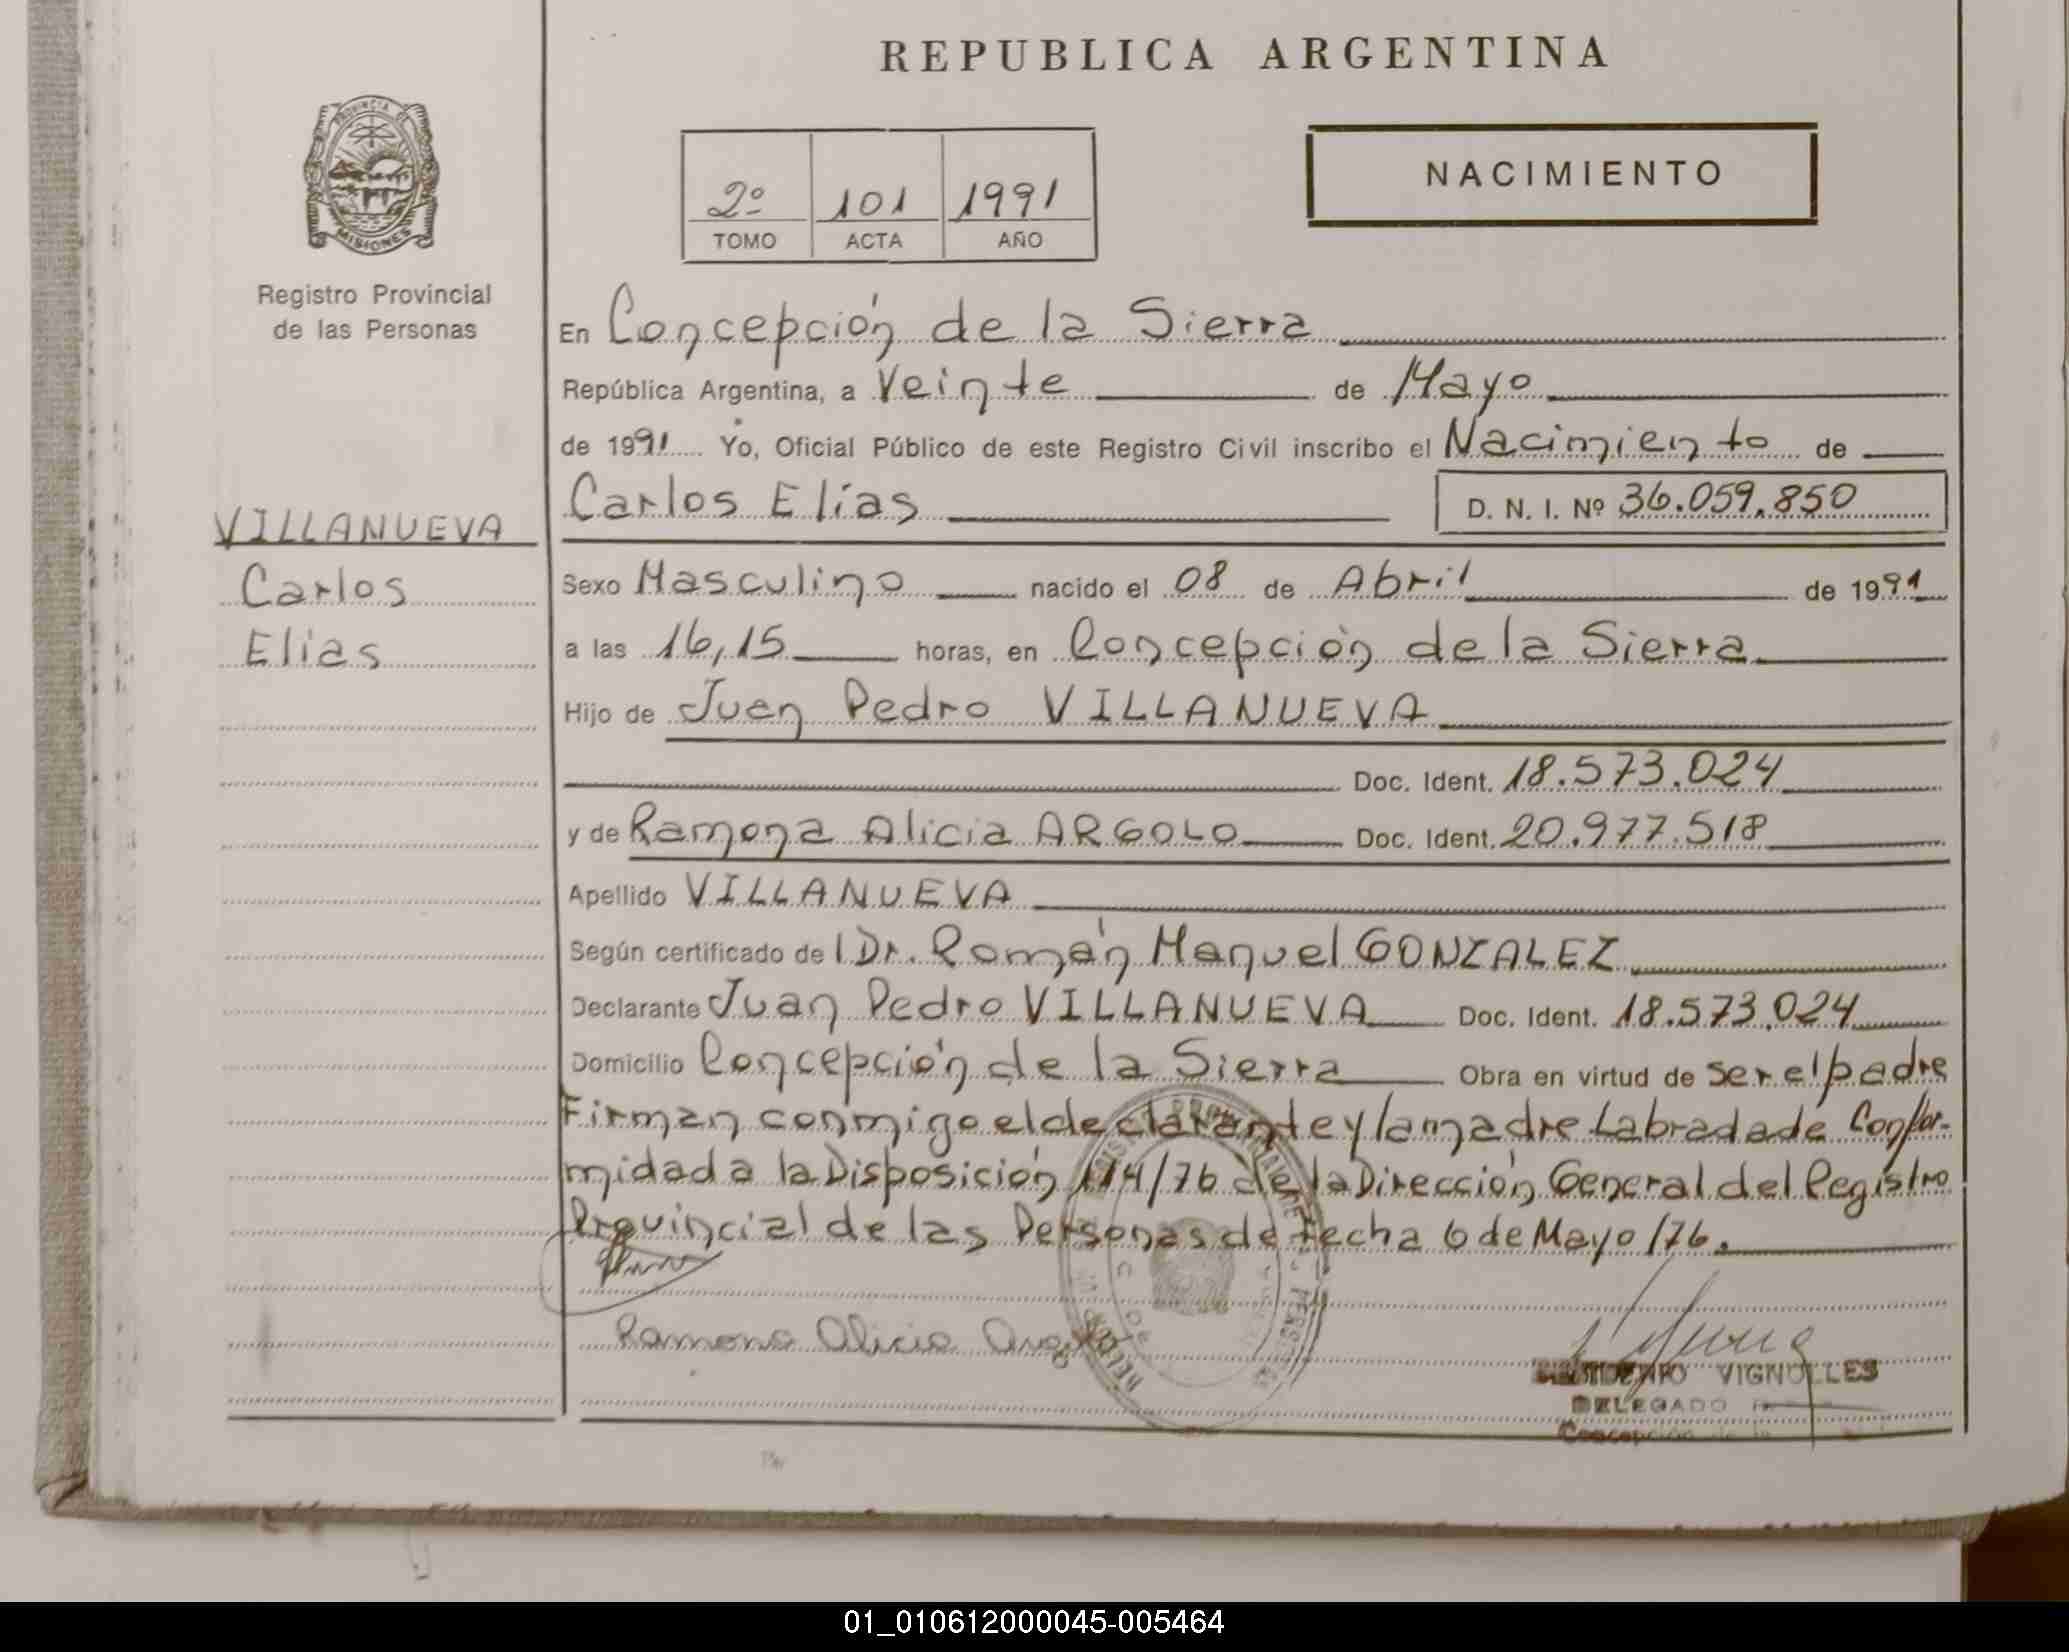 REPUBLICA ARGENTINA
PROVINCIA DE
MISIONES
Registro Provincial
de las Personas
NACIMIENTO
2º 101 1991
TOMO ACTA AÑO
En Concepción de la Sierra
República Argentina, a Veinte de Mayo
de 1991 Yo, Oficial Público de este Registro Civil inscribo el Nacimiento de
Carlos Elías D. N. I. Nº 36.059.850
VILLANUEVA
Carlos
Elías
Sexo Masculino nacido el 08 de Abril de 1991
a las 16,15 horas, en Concepción de la Sierra
Hijo de Juan Pedro VILLANUEVA
Doc. Ident. 18.573.024
y de Ramona Alicia ARGOLO Doc. Ident. 20.977.518
Apellido VILLANUEVA
Según certificado del Dr. Román Manuel GONZALEZ
Declarante Juan Pedro VILLANUEVA Doc. Ident. 18.573.024
Domicilio Concepción de la Sierra Obra en virtud de ser el padre
Firman conmigo el declarante y la madre Labrada de Confor-
midad a la Disposición 114/76 de la Dirección General del Registro
Provincial de las Personas de fecha 6 de Mayo/76.
Ramona Alicia
VIGNOLLES
DELEGADO
Concepción de la
01_010612000045-005464